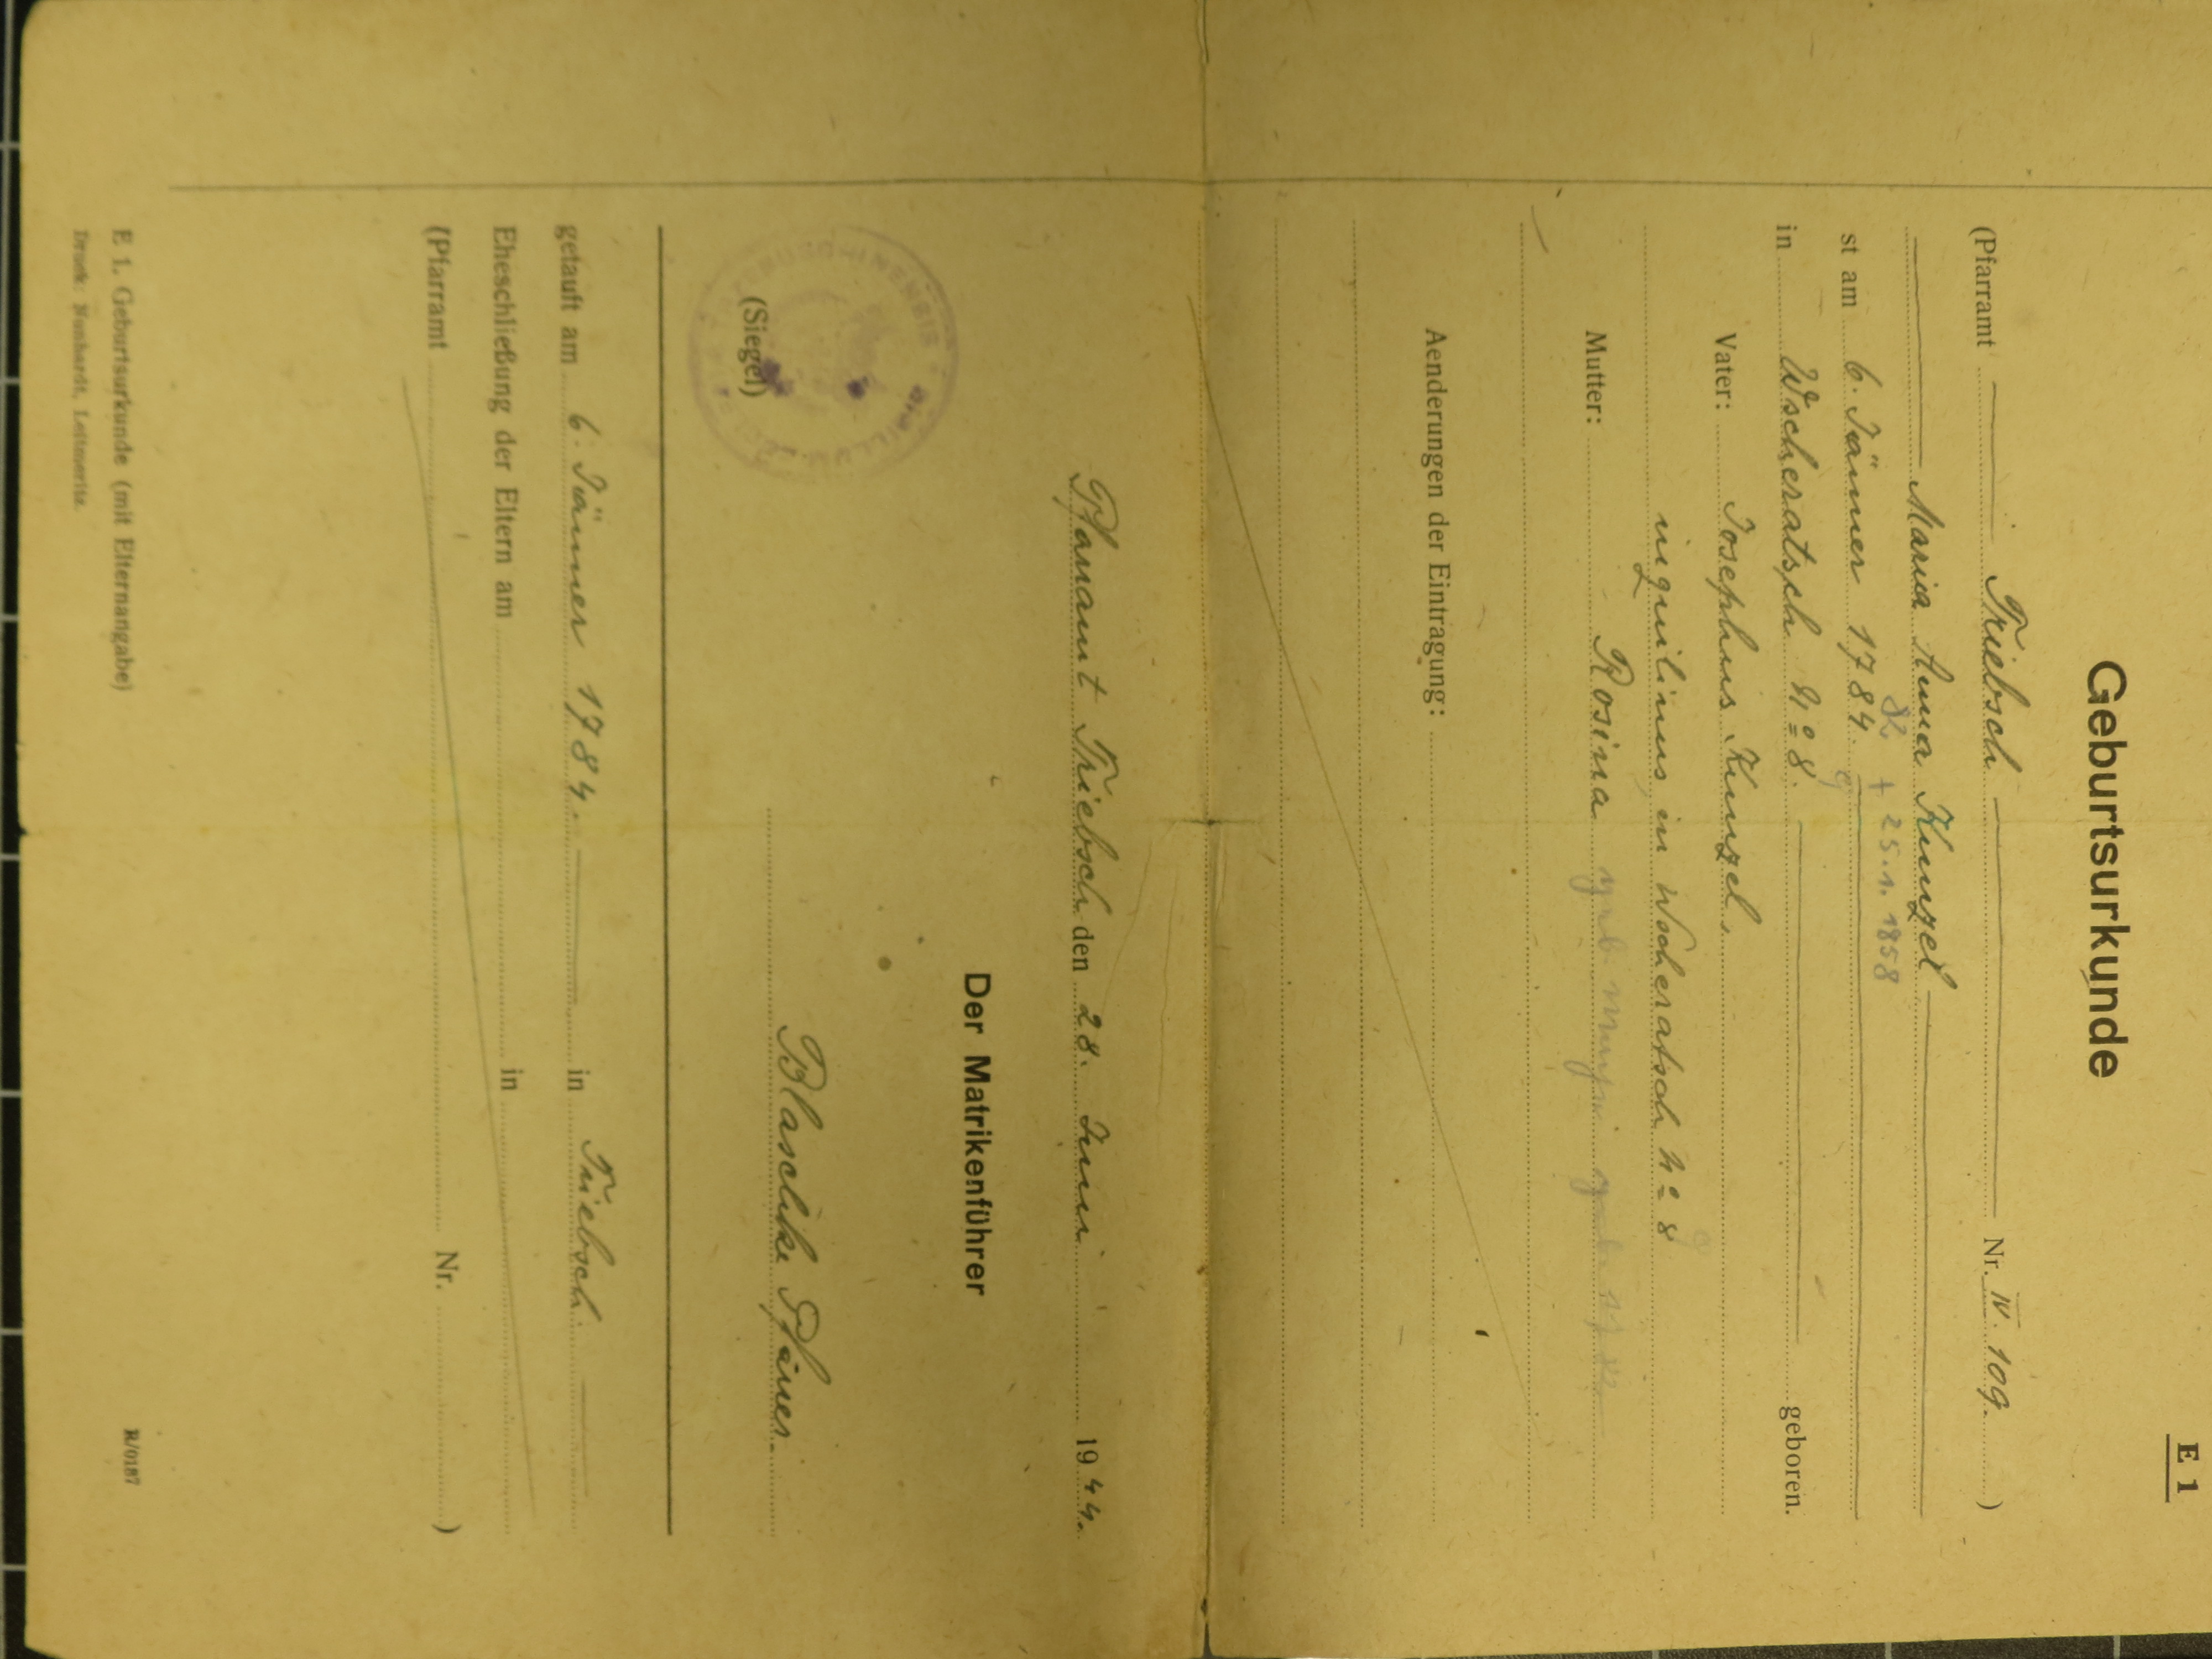 E 1
Geburtsurkunde
(Pfarramt Triebsch Nr. IV. 109. )
Maria Anna Kunzel
82 + 25.1.1858
st am 6. Jänner 1784.
9
in Wscheratsch No 8. geboren.
Vater: Josephus Kunzel,
9
inquilinus in Wscheratsch No 8
Mutter: Rosina geb. geb. 17
Aenderungen der Eintragung:
Pfarramt Triebsch den 28. Juni 1944.
Der Matrikenführer
Blaschke Pfarrer.
(Siegel)
getauft am 6. Jänner 1784. in Triebsch.
Eheschließung der Eltern am in
(Pfarramt Nr. )
E 1. Geburtsurkunde (mit Elternangabe)
R/0187
Druck: Nunhardt, Leitmeritz.